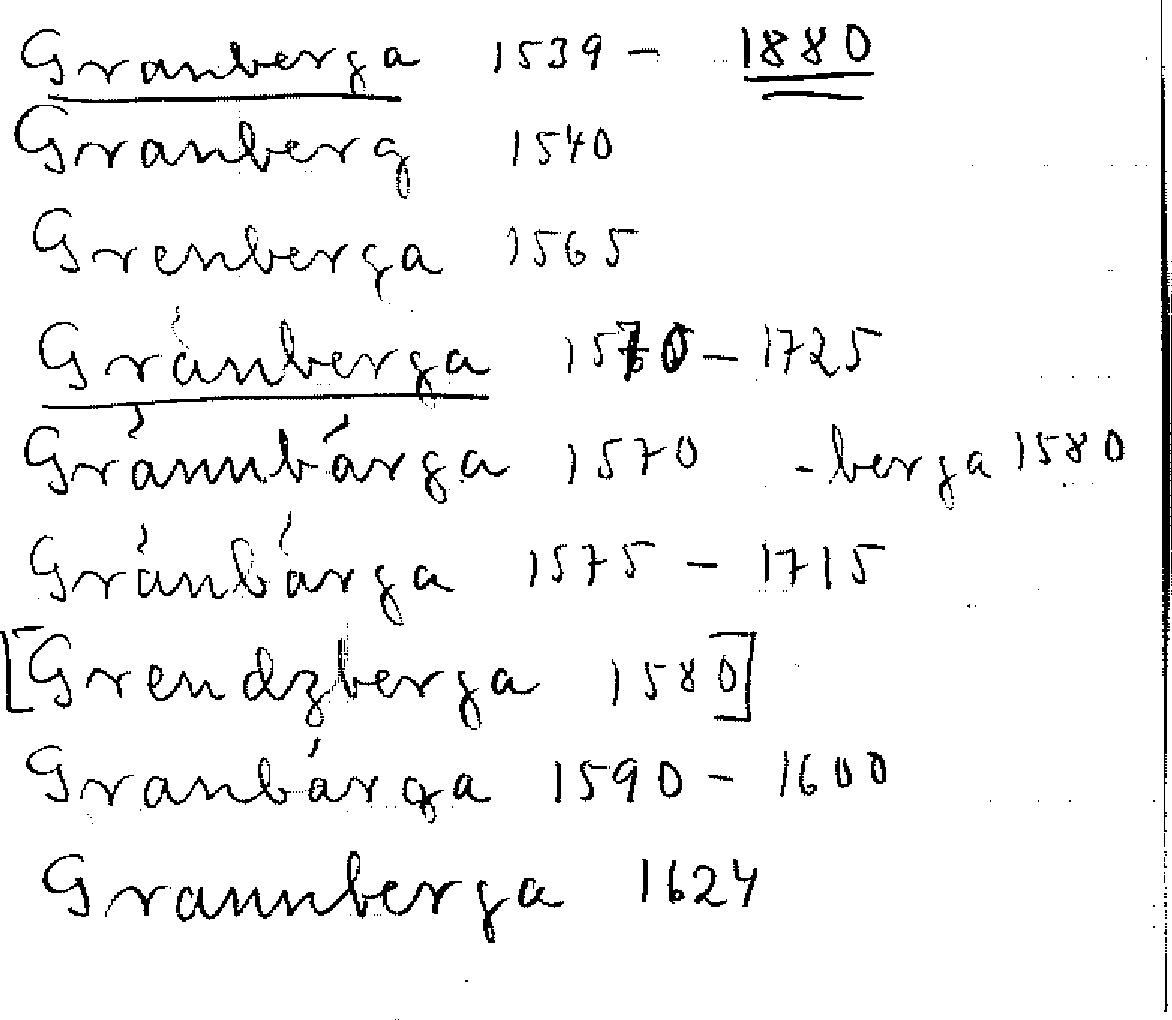 Granberga 1539 – 1880
Granberg 1540
Grenberga 1565
Gränberga 1570 – 1725
Grännbärga 1570 -berga 1580
Gränbärga 1575 – 1715
[Grendzberga 1580]
Granbärga 1590 – 1600
Grannberga 1624